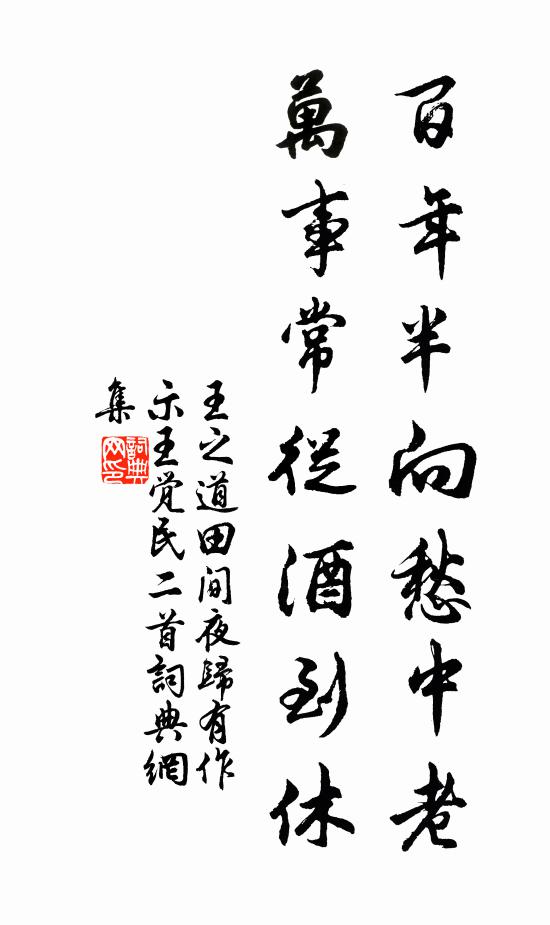 百年半向愁中老
萬事常從酒到休
王之道田间夜歸有作
示王觉民二首詞典網
集
詞典
网印